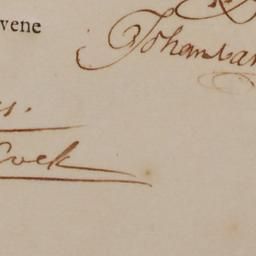 vene
Johan van
Cock